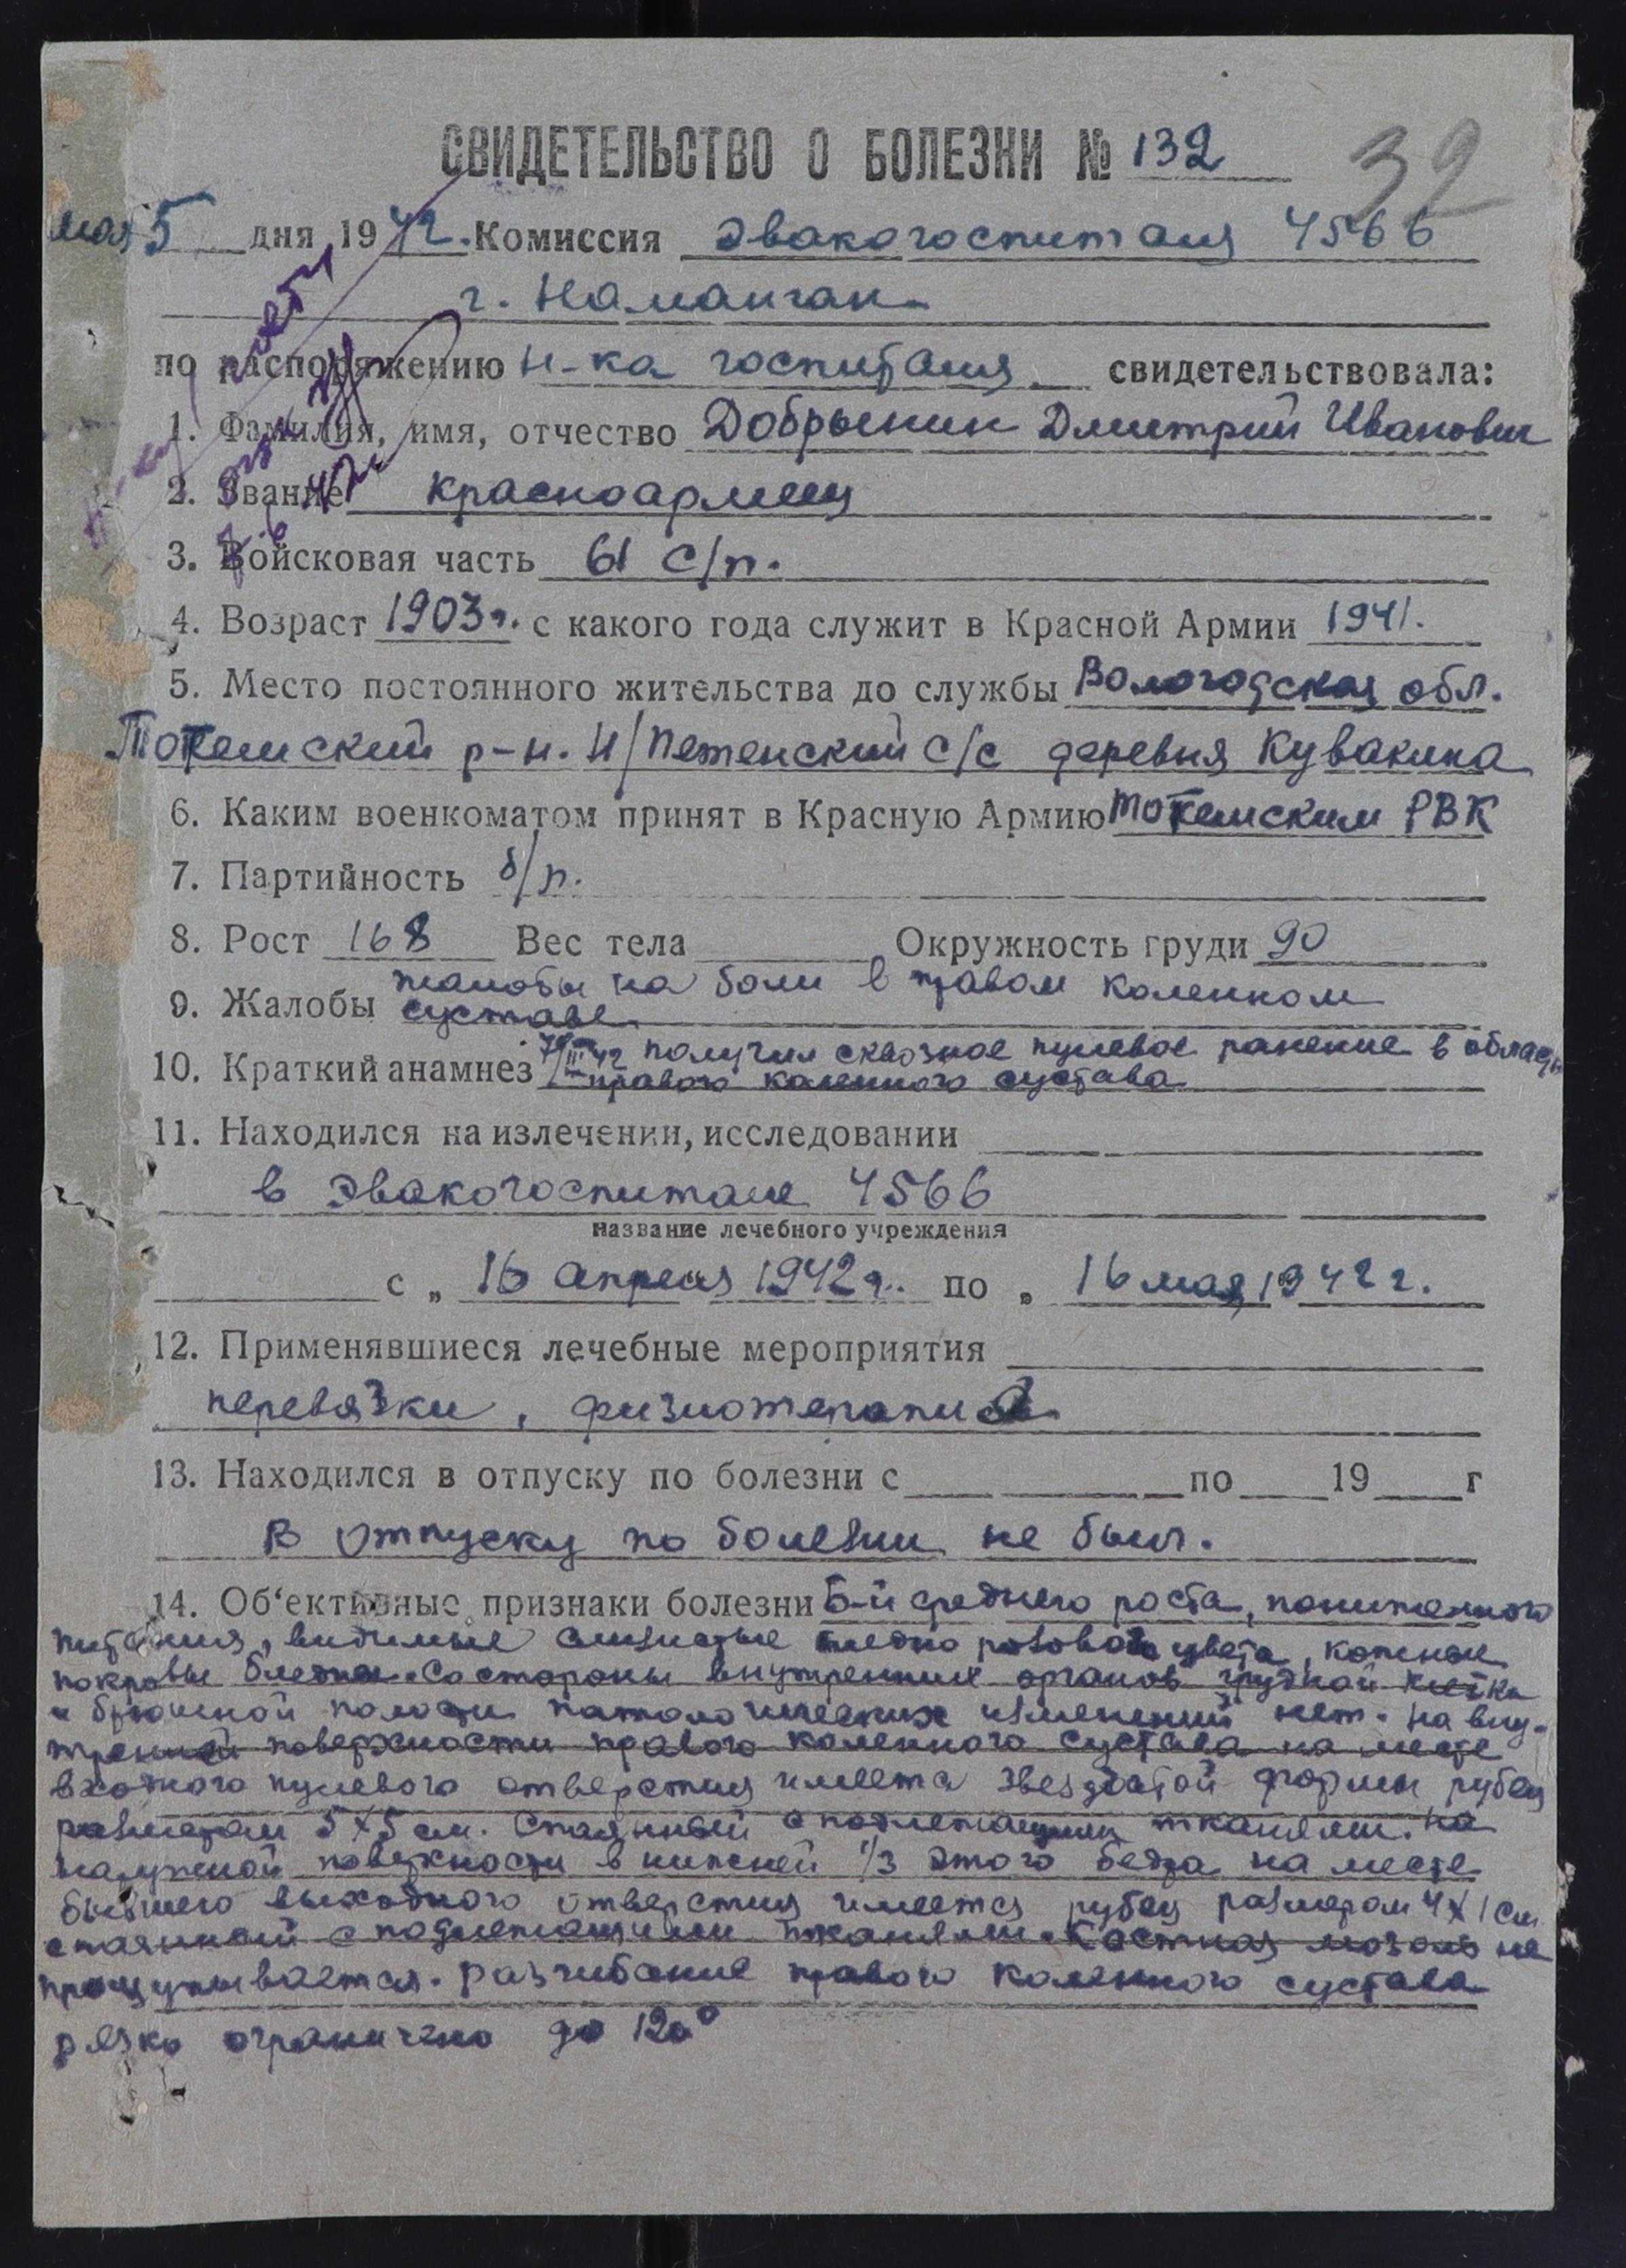 СВИДЕТЕЛЬСТВО О БОЛЕЗНИ № 132
32
мая 5 дня 1942. Комиссия эвакогоспиталя 4566
г. Наманган
по распоряжению н-ка госпиталя свидетельствовала:
1. Фамилия, имя, отчество Добрынин Дмитрий Иванович
2. Звание красноармеец
3. Войсковая часть 61 с/п.
4. Возраст 1903г. с какого года служит в Красной Армии 1941.
5. Место постоянного жительства до службы Вологодская обл.
Тотемский р-н. Н/Печенский с/с деревня Кувакина
6. Каким военкоматом принят в Красную Армию Тотемским РВК
7. Партийность б/п.
8. Рост 168 Вес тела Окружность груди 90
9. Жалобы жалобы на боли в правом коленном
суставе
10. Краткий анамнез III 42 получил сквозное пулевое ранение в область
правого коленного сустава
11. Находился на излечении, исследовании
в эвакогоспитале 4566
название лечебного учреждения
с „ 16 апреля 1942г. по „ 16 мая 1942 г.
12. Применявшиеся лечебные мероприятия
перевязки, физиотерапия
13. Находился в отпуску по болезни с по 19 г
В отпуску по болезни не был.
14. Об‘ективные признаки болезни Б-й среднего роста, пониженного
питания, видимые слизистые бледно розового цвета, кожные
покровы бледные. Со стороны внутренних органов грудной клетки
и брюшной полости патологических изменений нет. На внут-
тренней поверхности правого коленного сустава на месте
входного пулевого отверстия имеется звездчатой формы рубец
размером 5х5 см. Спаянный с подлежащими тканями. На
наружной поверхности в нижней 1/3 этого бедра на месте
бывшего выходного отверстия имеется рубец размером 4х1 см
спаянный с подлежащими тканями. Костная мозоль не
прощупывается. Разгибание правого коленного сустава
резко ограничено до 120°